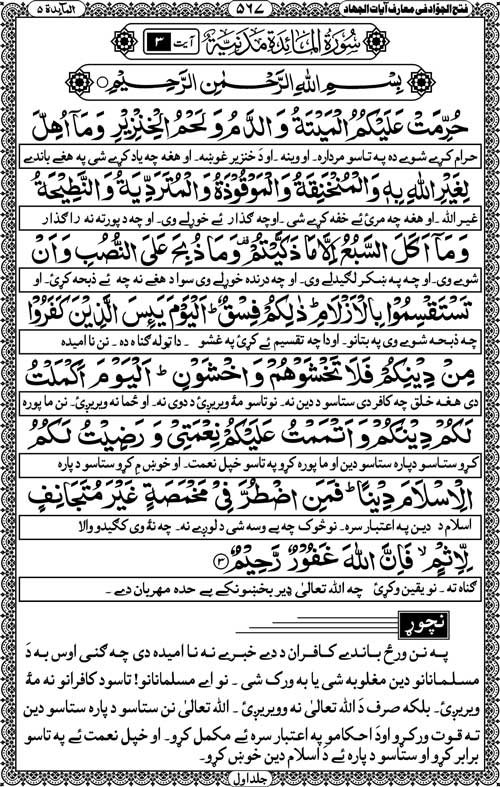 فتح الجوّاد فی معارف آیات الجهاد ۵۶۷ المآىِٕدة ۵
سُوْرَةُ الْمَائِدَةِ مَدَنِیَّةٌ آیت ۳
بِسْمِ اللهِ الرَّحْمٰنِ الرَّحِیْمِ
حُرِّمَتْ عَلَیْكُمُ الْمَیْتَةُ وَ الدَّمُ وَ لَحْمُ الْخِنْزِیْرِ وَ مَاۤ اُهِلَّ
حرام کړے شوے دہ پہ تاسو مردارہ۔ او وینہ۔ او دَ خنزیر غوښہ۔ او هغہ چہ یاد کړے شی پہ هغے باندے
لِغَیْرِ اللهِ بِهٖ وَ الْمُنْخَنِقَةُ وَ الْمَوْقُوْذَةُ وَ الْمُتَرَدِّیَةُ وَ النَّطِیْحَةُ
غیر الله۔ او هغہ چہ مرئ ئے خفہ کړے شی۔ او چہ گذار ئے خوړلے وی۔ او چہ د پورتہ نہ را گذار
وَ مَاۤ اَكَلَ السَّبُعُ اِلَّا مَا ذَكَّیْتُمْ۫ وَ مَا ذُبِحَ عَلَی النُّصُبِ وَ اَنْ
شوے وی۔ او چہ پہ ښکر لگیدلے وی۔ او چہ درندہ خوړلے وی سوا د هغے نہ چہ ئے ذبحہ کړئ۔ او
تَسْتَقْسِمُوْا بِالْاَزْلَامِؕ ذٰلِكُمْ فِسْقٌؕ اَلْیَوْمَ یَىِٕسَ الَّذِیْنَ كَفَرُوْا
چہ ذبحہ شوے وی پہ بتانو۔ او دا چہ تقسیم ئے کړئ پہ غشو ۔ دا ټولہ گناہ دہ۔ نن نا امیدہ
مِنْ دِیْنِكُمْ فَلَا تَخْشَوْهُمْ وَ اخْشَوْنِؕ اَلْیَوْمَ اَكْمَلْتُ
دی هغہ خلق چہ کافر دی ستاسو د دین نہ۔ نو تاسو مۀ ویریږئ د دوی نہ۔ او خُما نہ ویریږئ۔ نن ما پورہ
لَكُمْ دِیْنَكُمْ وَ اَتْمَمْتُ عَلَیْكُمْ نِعْمَتِیْ وَ رَضِیْتُ لَكُمُ
کړو ستاسو دپارہ ستاسو دین او ما پورہ کړو پہ تاسو خپل نعمت۔ او خوښ مِ کړو ستاسو د پارہ
الْاِسْلَامَ دِیْنًاؕ فَمَنِ اضْطُرَّ فِیْ مَخْمَصَةٍ غَیْرَ مُتَجَانِفٍ
اسلام د دین پہ اعتبار سرہ۔ نو څوک چہ بے وسہ شی د لوږے نہ۔ چہ نۀ وی کگیدو والا
لِّاِثْمٍۙ فَاِنَّ اللهَ غَفُوْرٌ رَّحِیْمٌ ۳
گناہ تہ۔ نو یقین وکړئ چہ الله تعالیٰ ډیر بخښونکے بے حدہ مهربان دے ۔
نچوړ
پہ نن ورځ باندے کافران د دے خبرے نہ نا امیدہ دی چہ گنی اوس بہ دَ
مسلمانانو دین مغلوبہ شی یا بہ ورک شی ۔ نو اے مسلمانانو! تاسو د کافرانو نہ مۀ
ویریږئ۔ بلکہ صرف دَ الله تعالیٰ نہ وویریږئ۔ الله تعالیٰ نن ستاسو د پارہ ستاسو دین
تہ قوت ورکړو او دَ احکامو پہ اعتبار سرہ ئے مکمل کړو۔ او خپل نعمت ئے پہ تاسو
برابر کړو او ستاسو د پارہ ئے دَ اسلام دین خوښ کړو۔
جلد اول